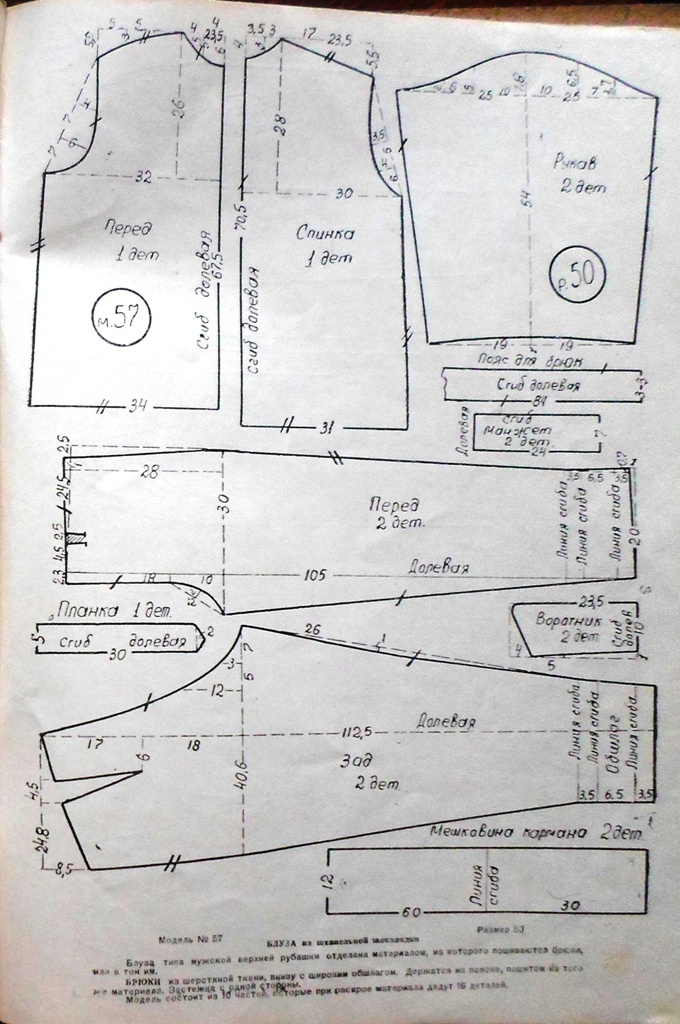 5 5 3 4 4 23,5
3,5 3 17 23,5
26
28
32
30
Перед
1 дет
м.57
Сгиб долевая
67,5
70,5
Спинка
1 дет
сгиб долевая
34
31
6 5 25 10 10 25 7
Рукав
2 дет
54
р.50
19 19
Пояс для брюк
Сгиб долевая
84
3-3
Долевая
сгиб
Манжет
2 дет.
24
7
2,5
28
24,5
30
Перед
2 дет.
3,5 6,5 3,5
0,7
Линия сгиба
Линия сгиба
Линия сгиба
20
2,5
4,5
2,3
18 10
105
Долевая
Планка 1 дет.
5
сгиб долевая
30
2
23,5
Воротник
2 дет
Сгиб долев
10
4
5
26
1
7
3
5
12
17 18
6
112,5
Долевая
Зад
2 дет.
40,6
4,5
24,8
8,5
Линия сгиба
Линия сгиба
Обшлаг
Линия сгиба
3.5 6.5 3,5
Мешковина кармана 2 дет
12
Линия сгиба
60
30
Модель № 57
Размер 50
БЛУЗА из
Блуза типа мужской верхней рубашки отделана материалом, из которого пошиваются брюки,
или в тон им.
БРЮКИ из шерстяной ткани, внизу с широким обшлагом. Держатся на поясе, пошитом из того
же материала. Застежка с одной стороны.
Модель состоит из 10 частей, которые при раскрое материала дадут 16 деталей.